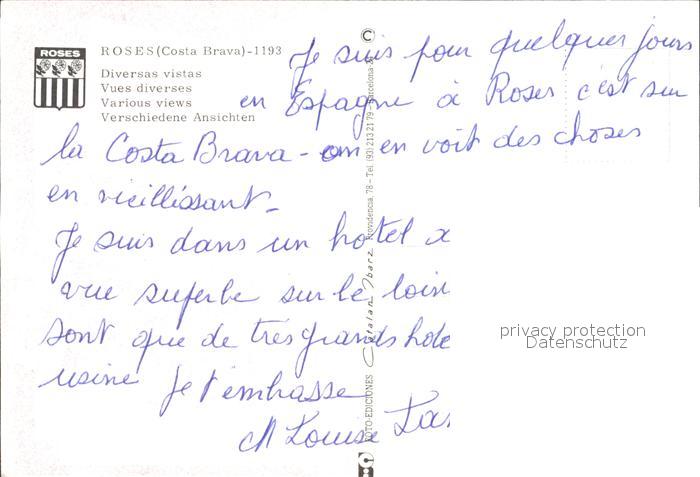 ROSES
ROSES (Costa Brava) - 1193
Diversas vistas
Vues diverses
Various views
Verschiedene Ansichten
Je suis pour quelques jours
en Espagne à Roses c'est sur
la Costa Brava - on en voit des choses
en vieillissant -
Je suis dans un hotel a
vue superbe sur le loin
sont que de très grands hote
usine Je t'embrasse
M Louise
FOTO-EDICIONES Catalan Ibarz Providencia, 78 - Tel. (93) 213 21 79 - Barcelona
©
privacy protection
Datenschutz